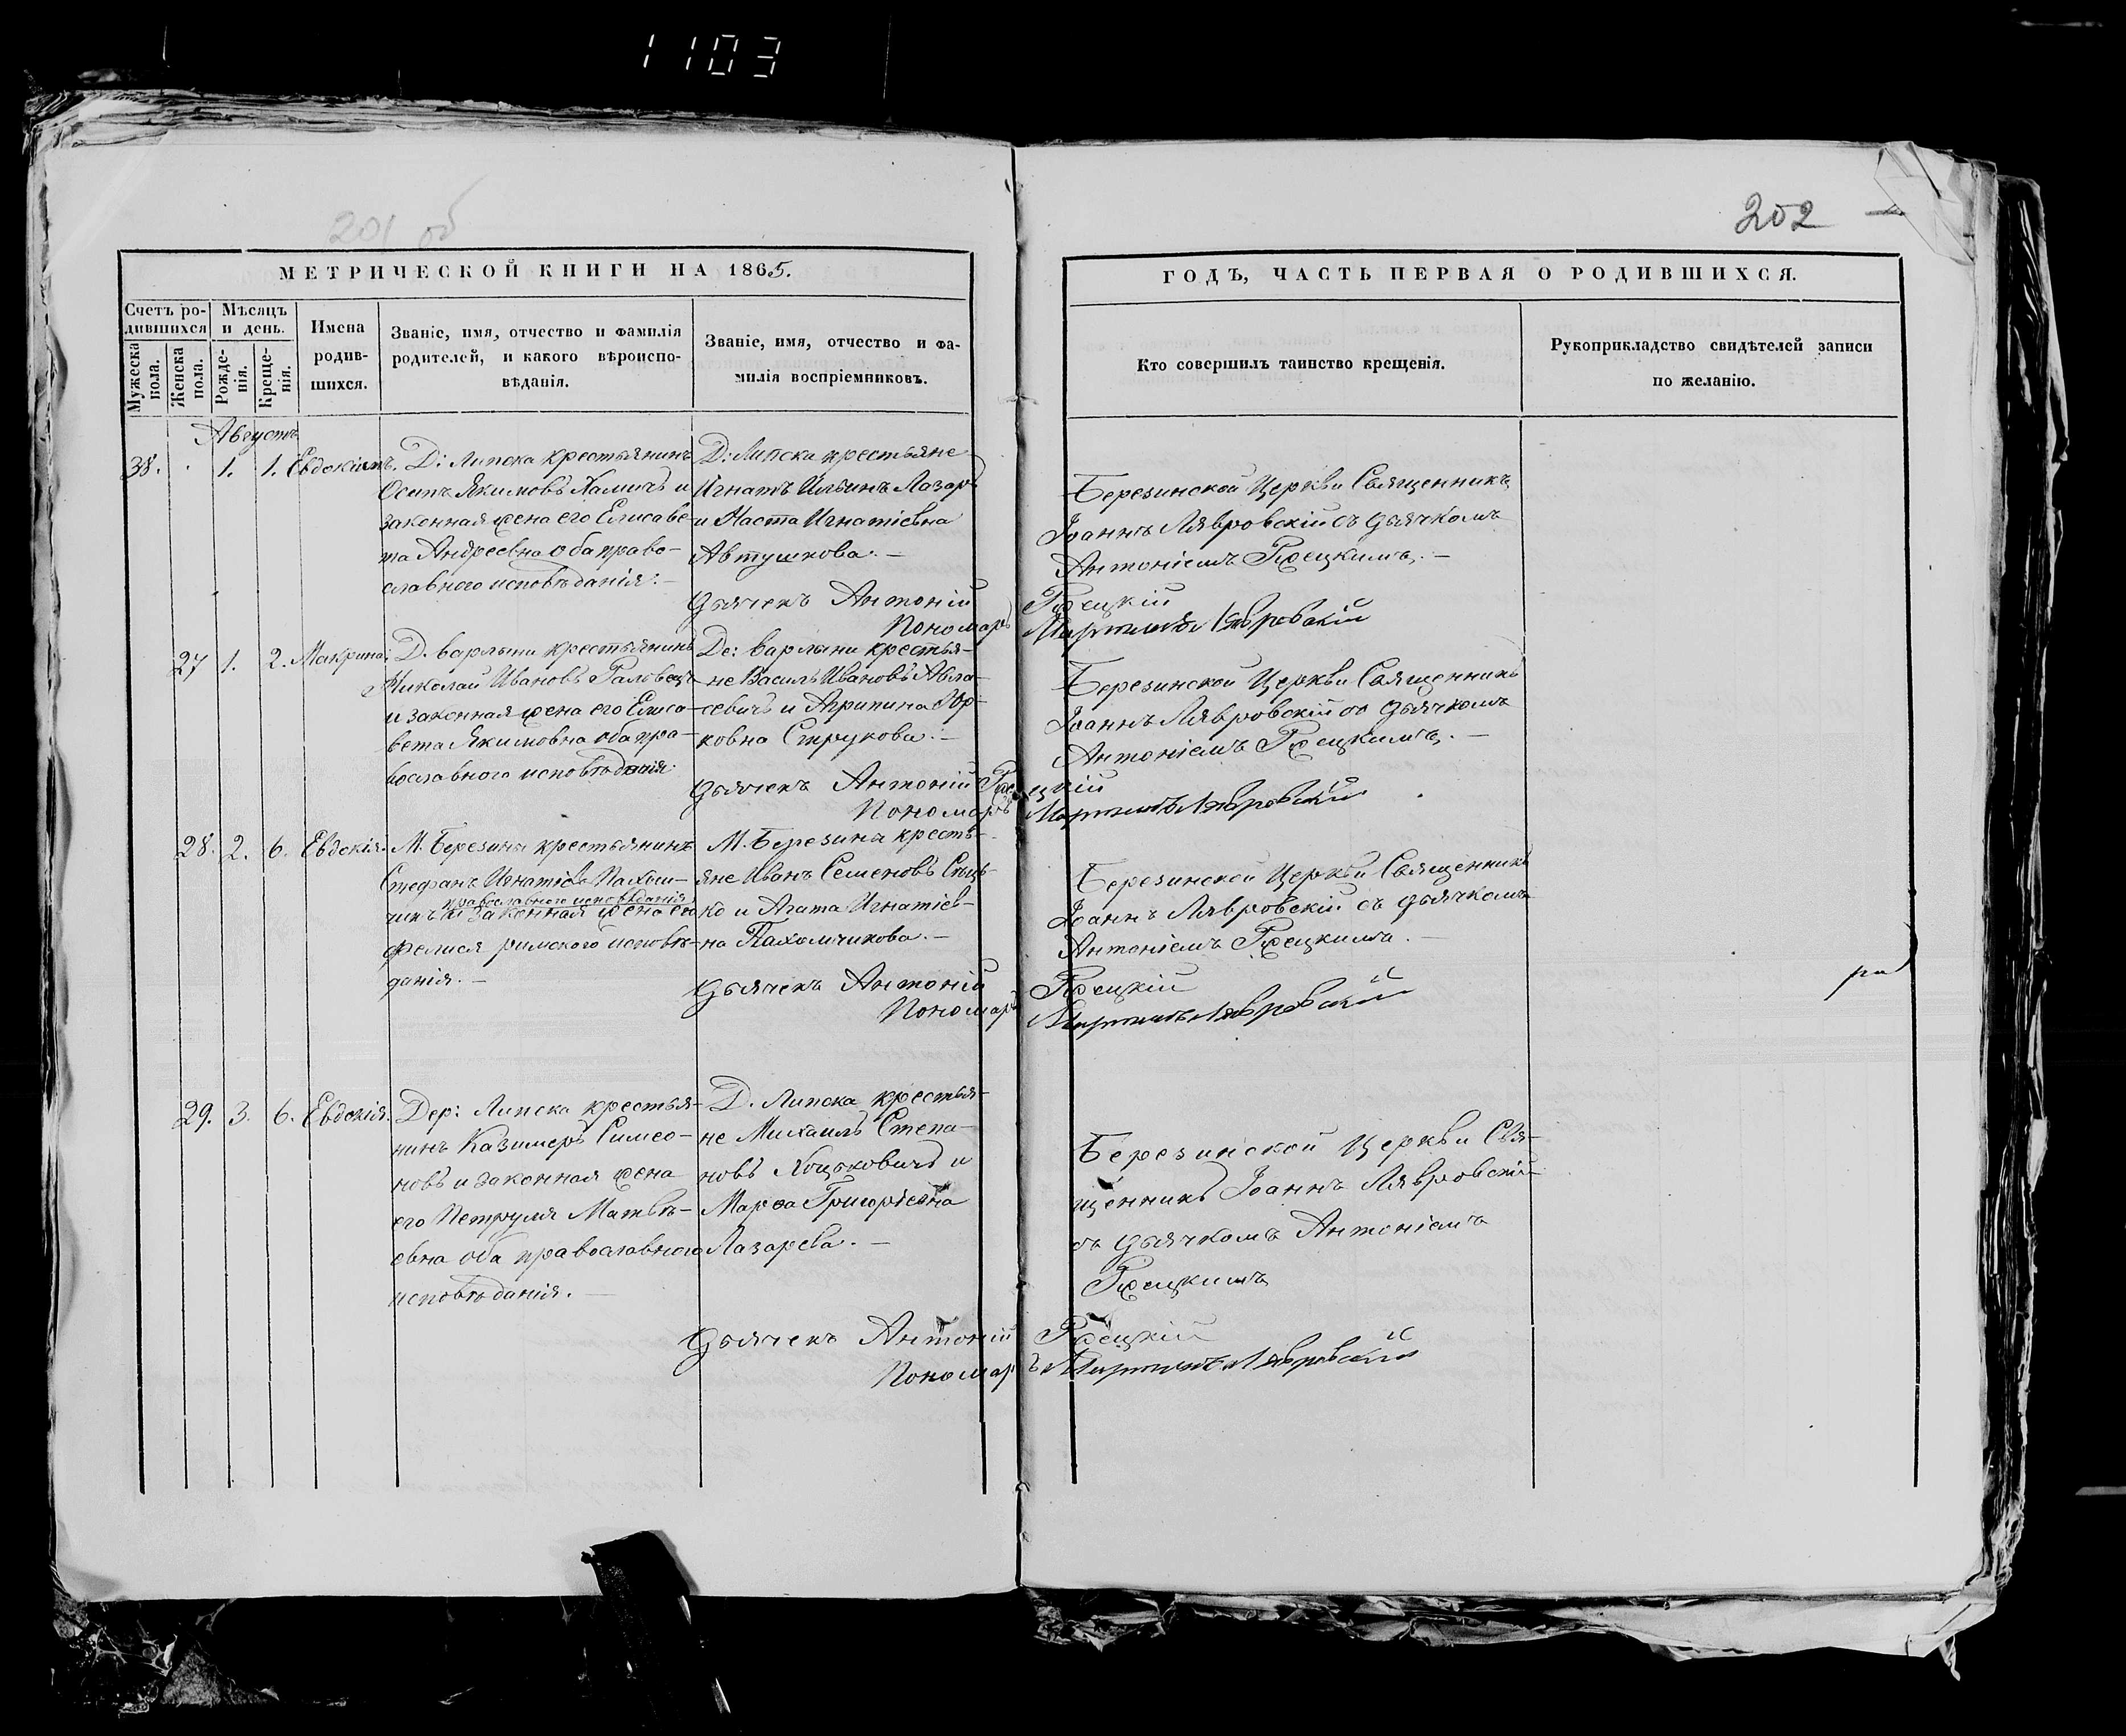 1103
201 об
202
МЕТРИЧЕСКОЙ КНИГИ НА 1865.
Счетъ ро-
дившихся
Мѣсяцъ
и день.
Мужеска
пола.
Женска
пола.
Рожде-
нія.
Креще-
нія.
Имена
родив-
шихся.
Званіе, имя, отчество и фамилія
родителей, и какого вѣроиспо-
вѣданія.
Званіе, имя, отчество и фа-
милія воспріемниковъ.
ГОДЪ, ЧАСТЬ ПЕРВАЯ О РОДИВШИХСЯ.
Кто совершилъ таинство крещенія.
Рукоприкладство свидѣтелей записи
по желанію.
Августъ
38. 1. 1. Евдокимъ.
Д: Липска крестьянинъ
Осипъ Якимовъ и
законная жена его Елисаве-
та Андреевна оба право-
славного исповѣданія. –
Д: Липска крестьяне
Игнатъ Ильинъ Лазарь
и Наста Игнатіевна
Автушкова. –
Березинской Церкви Священникъ
Іоаннъ Лявровскій съ дьячкомъ
Антоніемъ –
Дьячекъ Антоній
Пономарь Мартинъ Лявровскій
27 1. 2. Макрина.
Д. Варлыни крестьянинъ
Николай Ивановъ
и законная жена его Елиса-
вета Якимовна оба пра-
вославного исповѣданія
Де: Варлыни крестья-
не Василь Ивановъ
и Агрипина Юр-
ковна Струкова. –
Березинской Церкви Священникъ
Іоаннъ Лявровскій съ дьячкомъ
Антоніемъ –
Дьячекъ Антоній
Пономарь Мартинъ Лявровскій
28. 2. 6. Евдокія.
М. Березины крестьянинъ
Стефанъ Игнатіевъ Пахом-
православного исповѣданія
чикъ и законная жена его
Фелися римского исповѣ-
данія. –
М. Березина кресть-
яне Иванъ Семеновъ
ко и Агата Игнатіев-
на Пахомчикова. –
Березинской Церкви Священникъ
Іоаннъ Лявровскій съ дьячкомъ
Антоніемъ –
Дьячекъ Антоній
Пономарь Мартинъ Лявровскій
29. 3. 6. Евдокія.
Дер: Липска крестья-
нинъ Казимеръ Симео-
новъ и законная жена
его Петруля Матвѣ-
евна оба православного
исповѣданія. –
Д. Липска крестья-
не Михаилъ Степа-
новъ и
Марѳа Григоріевна
Лазарева. –
Березинской Церкви Свя-
щенникъ Іоаннъ Лявровскій
съ дьячкомъ Антоніемъ
Дьячекъ Антоній
Пономарь Мартинъ Лявровскій